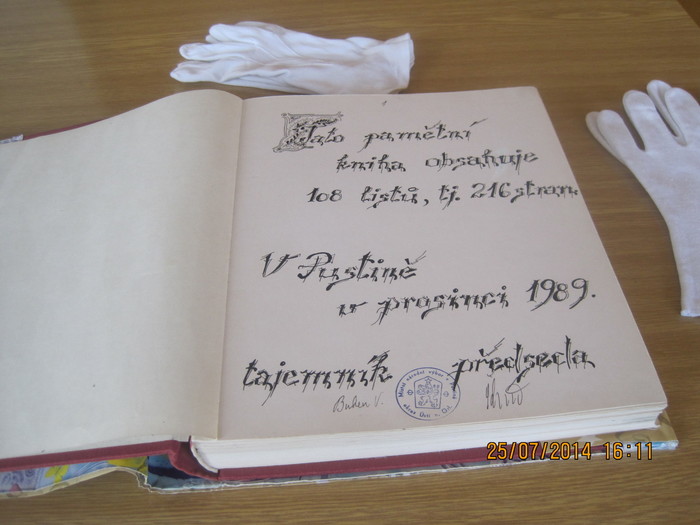 Tato pamětní
kniha obsahuje
108 listů, tj. 216 stran.
V Pustině
v prosinci 1989.
tajemník předseda
Místní národní výbor
okres Ústí n. Orl.
25/07/2014 16:11